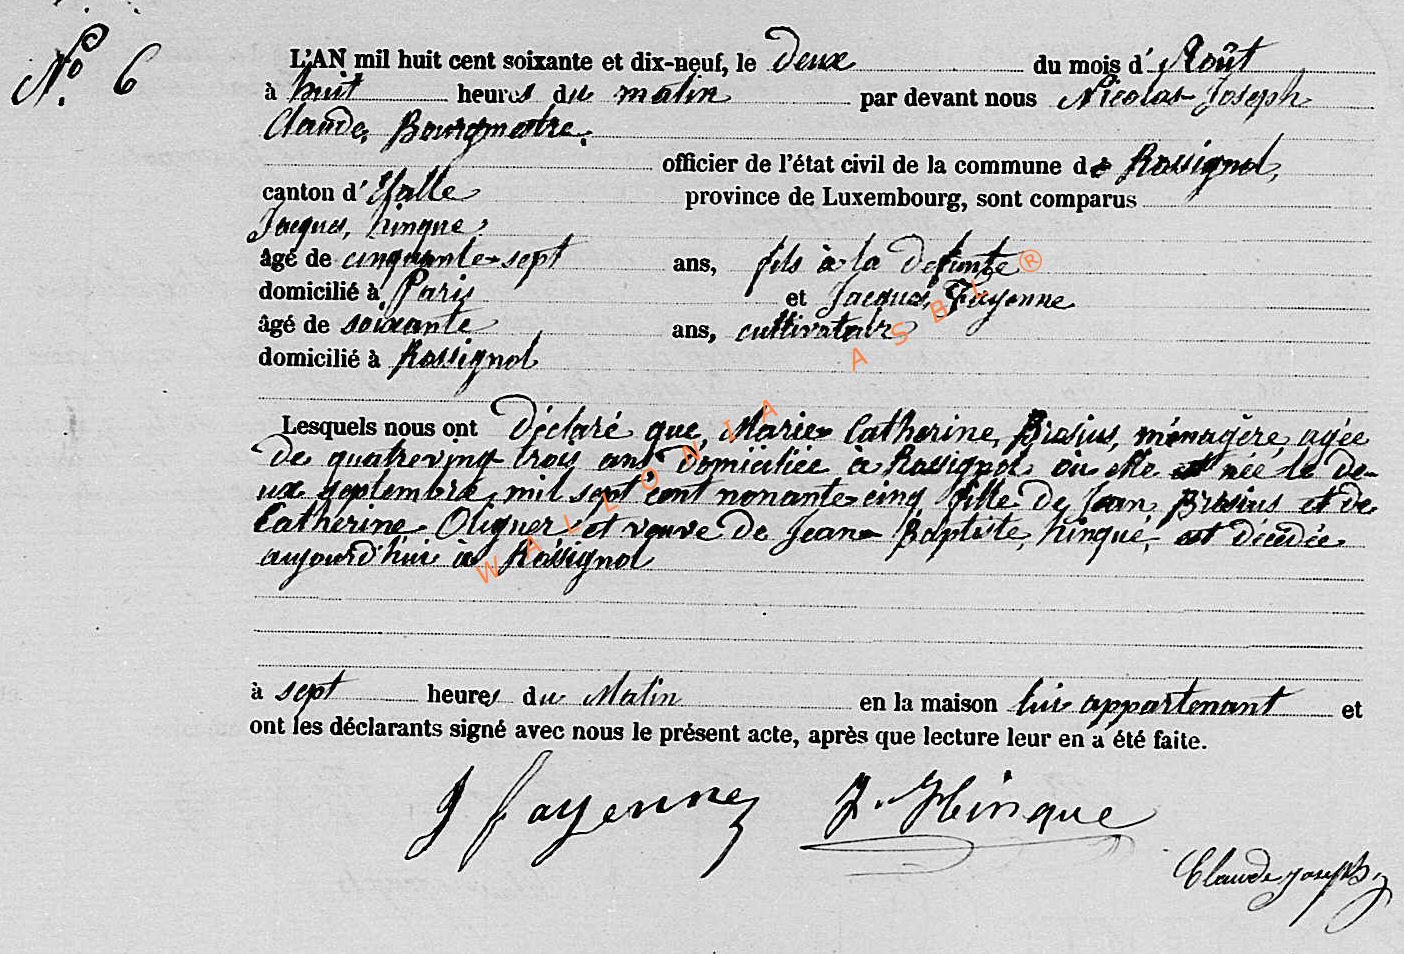 N° 6
L'AN mil huit cent soixante et dix-neuf, le Deux du mois d' Août
à huit heures du matin par devant nous Nicolas Joseph
Claude, Bourgmetre.
officier de l'état civil de la commune de Rossignol,
canton d' Etalle province de Luxembourg, sont comparus
Jacques, hinque.
âgé de cinquante-sept ans, fils à la defunte
domicilié à Paris et Jacques, Fayenne
âgé de soixante ans, cultivateur
domicilié à Rossignol
Lesquels nous ont Déclaré que, Marie Catherine, Brosius, ménagère, agée
de quatreving trois ans domiciliée à Rossignol où elle est née le de-
ux septembre, mil sept cent nonante-cinq fille de Jean Brosius et de
Catherine Oligner et veuve de Jean Baptiste, hinque, est décédée
aujourd'hui à Rossignol
à sept heures du Matin en la maison lui appartenant et
ont les déclarants signé avec nous le présent acte, après que lecture leur en a été faite.
J fayenne J. Hinque
Claude joseph
WALLONIA ASBL ®